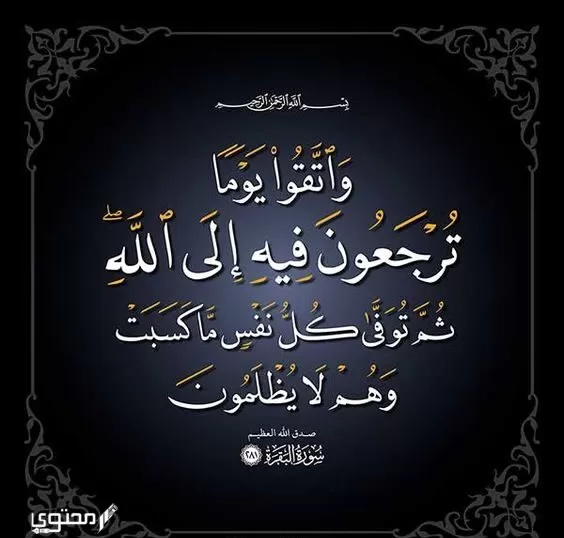 بِسْمِ ٱللَّهِ ٱلرَّحْمَٰنِ ٱلرَّحِيمِ
وَٱتَّقُوا۟ يَوْمًا
تُرْجَعُونَ فِيهِ إِلَى ٱللَّهِ ۖ
ثُمَّ تُوَفَّىٰ كُلُّ نَفْسٍ مَّا كَسَبَتْ
وَهُمْ لَا يُظْلَمُونَ
صدق الله العظيم
سُورَةُ البَقَرَةِ ٢٨١
محتوى